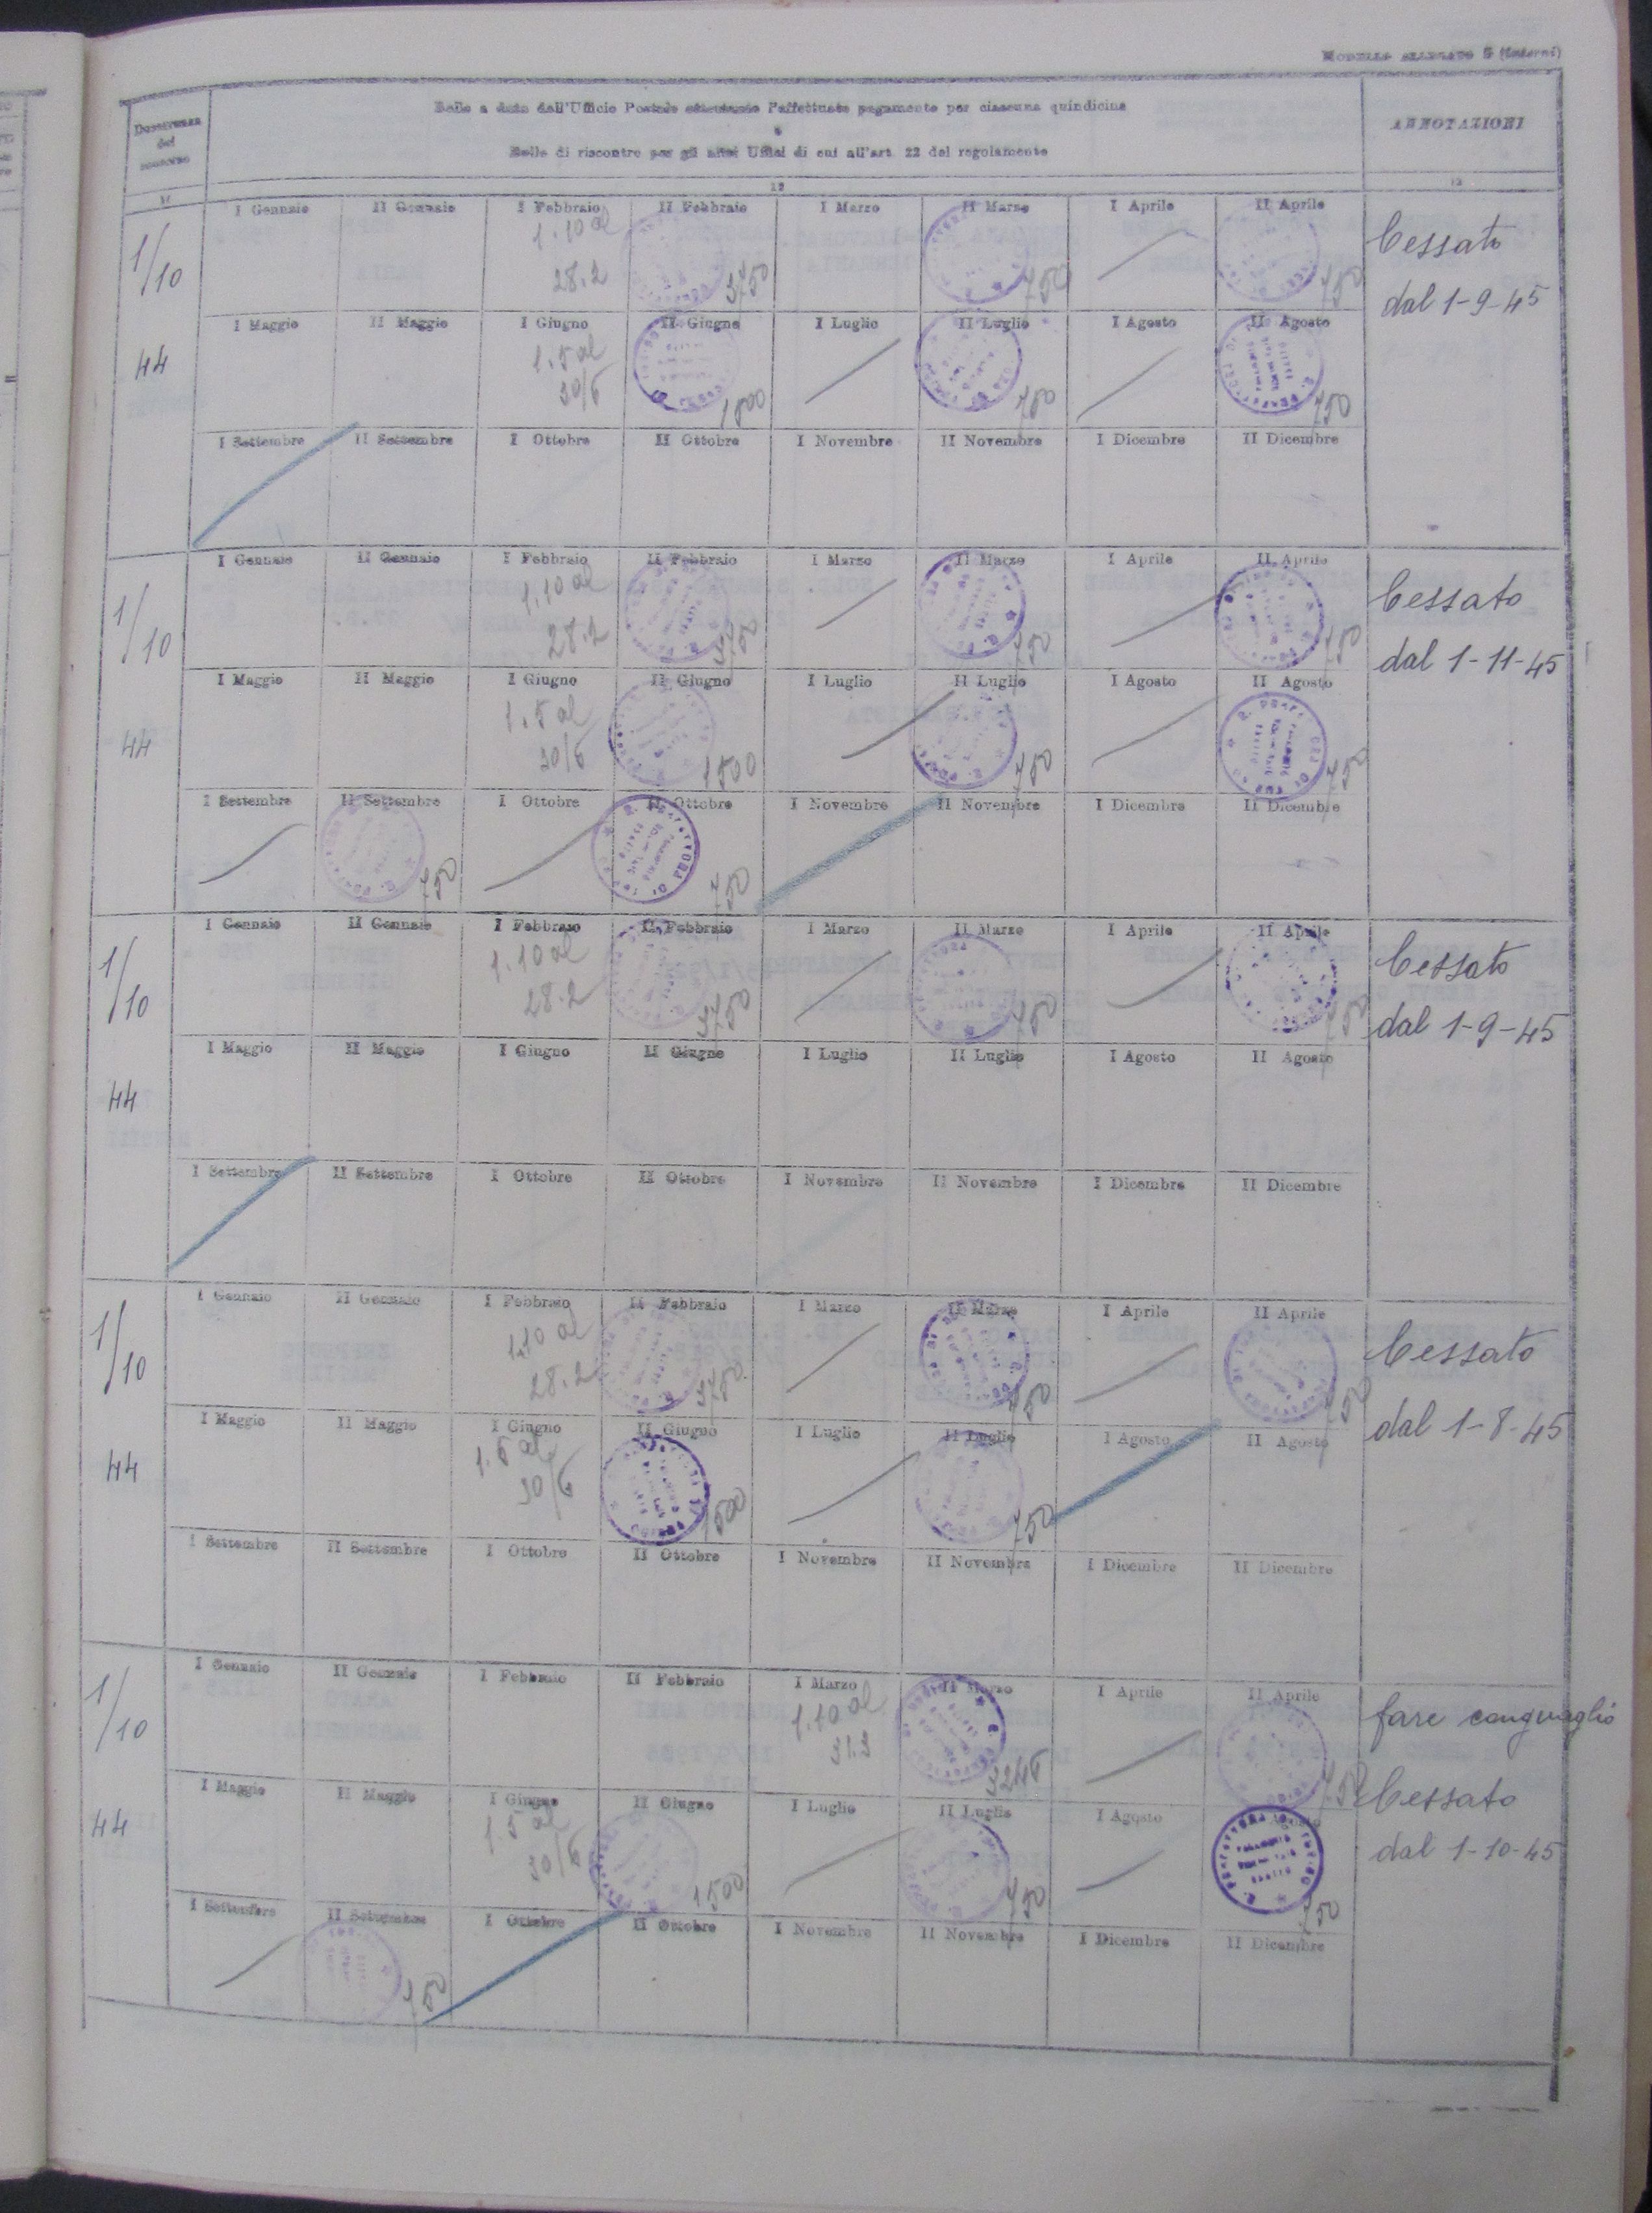 MODELLO ALLEGATO 5 (Interni)
Decorrenza
del
soccorso
Bollo a data dell'Ufficio Postale attestante l'effettuato pagamento per ciascuna quindicina
e
Bollo di riscontro per gli altri Uffici di cui all'art. 22 del regolamento
ANNOTAZIONI
1/10
44
I Gennaio II Gennaio I Febbraio II Febbraio I Marzo II Marzo I Aprile II Aprile
1.10 al
28.2 3750 750 750
I Maggio II Maggio I Giugno II Giugno I Luglio II Luglio I Agosto II Agosto
1.5 al
30/6 1500 750 750
I Settembre II Settembre I Ottobre II Ottobre I Novembre II Novembre I Dicembre II Dicembre
Cessato
dal 1-9-45
1/10
44
I Gennaio II Gennaio I Febbraio II Febbraio I Marzo II Marzo I Aprile II Aprile
1.10 al
28.2 3750 750 750
I Maggio II Maggio I Giugno II Giugno I Luglio II Luglio I Agosto II Agosto
1.5 al
30/6 1500 750 750
I Settembre II Settembre I Ottobre II Ottobre I Novembre II Novembre I Dicembre II Dicembre
750 750
Cessato
dal 1-11-45
1/10
44
I Gennaio II Gennaio I Febbraio II Febbraio I Marzo II Marzo I Aprile II Aprile
1.10 al
28.2 3750 750 750
I Maggio II Maggio I Giugno II Giugno I Luglio II Luglio I Agosto II Agosto
I Settembre II Settembre I Ottobre II Ottobre I Novembre II Novembre I Dicembre II Dicembre
Cessato
dal 1-9-45
1/10
44
I Gennaio II Gennaio I Febbraio II Febbraio I Marzo II Marzo I Aprile II Aprile
1.10 al
28.2 3750 750 750
I Maggio II Maggio I Giugno II Giugno I Luglio II Luglio I Agosto II Agosto
1.5 al
30/6 1500 750
I Settembre II Settembre I Ottobre II Ottobre I Novembre II Novembre I Dicembre II Dicembre
Cessato
dal 1-8-45
1/10
44
I Gennaio II Gennaio I Febbraio II Febbraio I Marzo II Marzo I Aprile II Aprile
1.10 al
31.3 3246 750
I Maggio II Maggio I Giugno II Giugno I Luglio II Luglio I Agosto Agosto
1.5 al
30/6 1500 750 750
I Settembre II Settembre I Ottobre II Ottobre I Novembre II Novembre I Dicembre II Dicembre
750
fare conguaglio
Cessato
dal 1-10-45